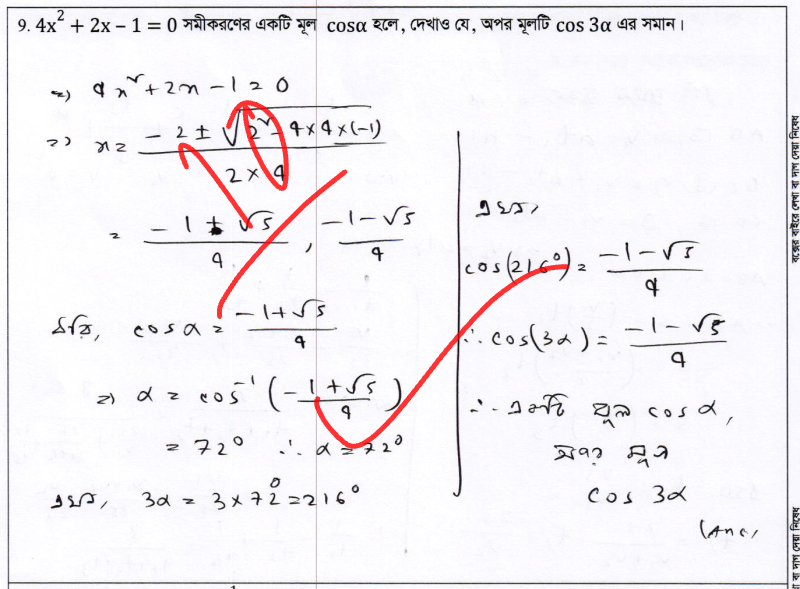 9. 4x² + 2x − 1 = 0 সমীকরণের একটি মূল cosα হলে, দেখাও যে, অপর মূলটি cos 3α এর সমান।
⇒ 4x² + 2x − 1 = 0
⇒ x = (−2 ± √(2² − 4×4×(−1))) / (2×4)
= (−1 ± √5)/4 , (−1−√5)/4
ধরি, cos α = (−1+√5)/4
⇒ α = cos⁻¹ ((−1+√5)/4)
= 72° ∴ α = 72°
এখন, 3α = 3×72° = 216°
এখন,
cos(216°) = (−1−√5)/4
∴ cos(3α) = (−1−√5)/4
∴ একটি মূল cos α,
অপর মূল
cos 3α
(Ans,
বক্সের বাইরে লেখা বা দাগ দেয়া নিষেধ
বা দাগ দেয়া নিষেধ